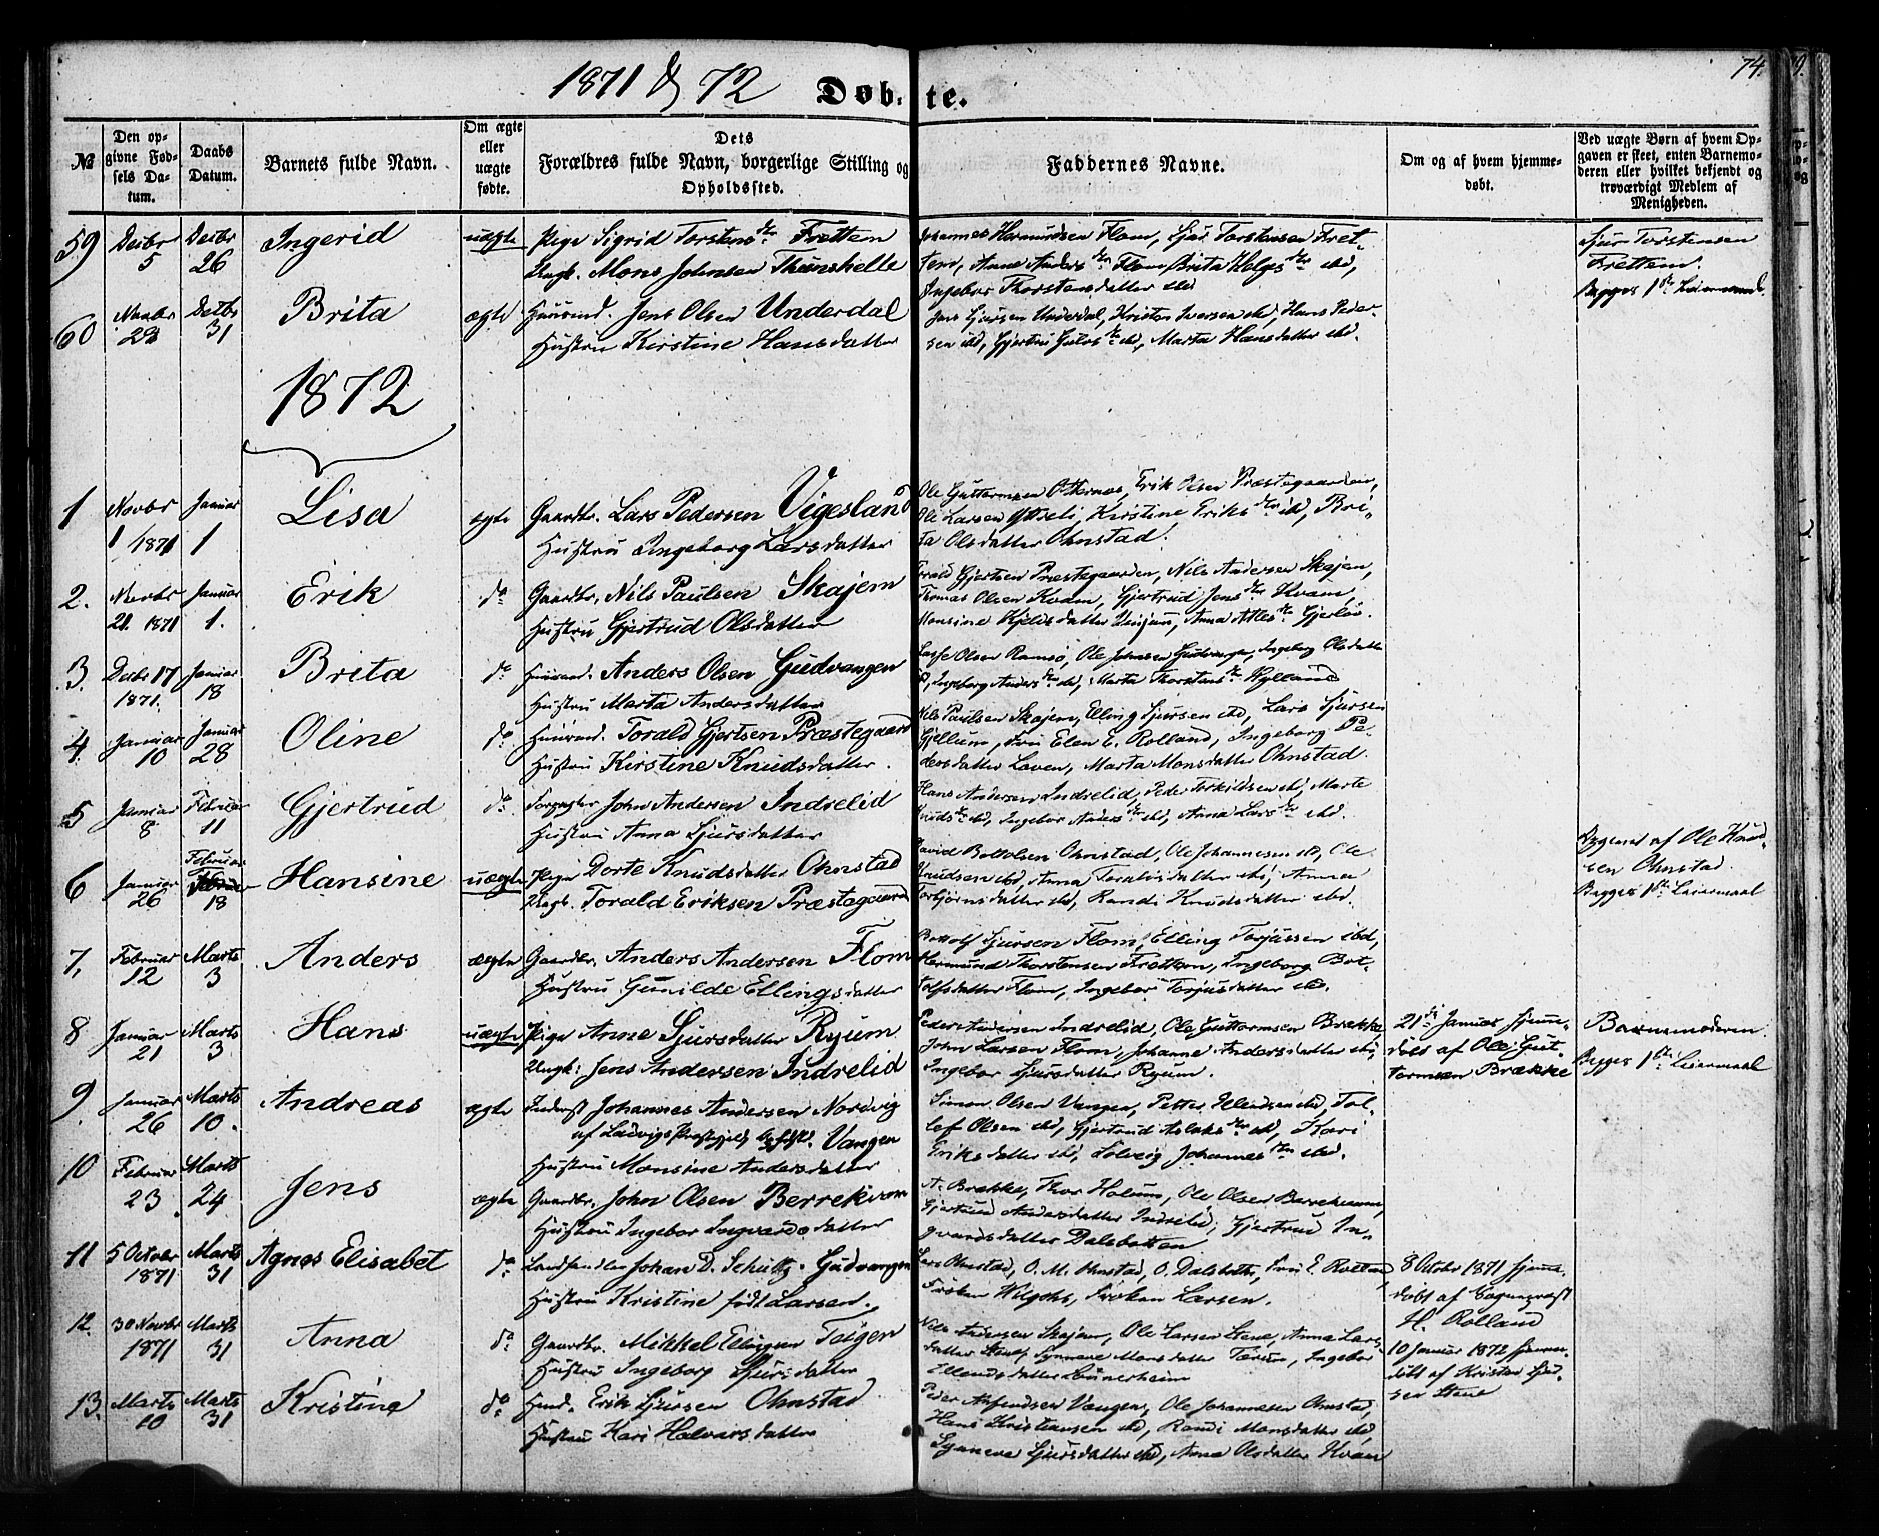 1871 & 72
Døbte.
74.
№
Den opgivne Fødsels Datum.
Daabs Datum.
Barnets fulde Navn.
Om ægte eller uægte fødte.
Dets Forældres fulde Navn, borgerlige Stilling og Opholdssted.
Faddernes Navne.
Om og af hvem hjemmedøbt.
Ved uægte Børn af hvem Opgaven er skeet, enten Barnemoderen eller hvilket bekjendt og troværdigt Medlem af Menigheden.
59 Decbr 5 Decbr 26 Ingerid uægte Pige Sigrid Torstens dtr Frettem
Ungk. Mons Johnsen Thunshelle
Johannes Hermundsen Flom, Sjur Torstensen Fret-
tem, Anne Anders dtr Flom, Brita Helges dtr ibd,
Ingebor Thorstensdatter ibd
Sjur Torstensen
Frettem.
Begges 1ste Leiermaal.
60 Novbr 28 Decbr 31 Brita ægte Huusmd. Jens Olsen Underdal
Hustru Kirstine Hansdatter
Jens Sjursen Underdal, Kristen Iversen ibd, Hans Peder-
sen ibd, Gjertru Gulos dtr ibd, Marta Hansdatter ibd.
1872
1 Novbr 1 1871 Januar 1 Lisa ægte Gaardbr. Lars Pedersen Vigesland
Hustru Ingeborg Larsdatter
Ole Guttormsen Otternes, Erik Olsen Præstegaarden,
Ole Larsen Ytreli, Kirstine Eriks dtr ibd, Bri-
ta Olsdatter Ohnstad.
2. Novbr 21. 1871 Januar 1. Erik do Gaardbr. Nils Paulsen Skajem
Hustru Gjertrud Olsdatter
Torald Gjertsen Præstegaarden, Nils Andersen Skajem,
Thomas Olsen Kvam, Gjertrud Jens dtr Hvam,
Monsine Kjelds datter Vinjum, Anna Atles dtr Gjerløv.
3. Decbr 17 1871. Januar 18 Brita do Huusmd. Anders Olsen Gudvangen
Hustru Marta Andersdatter
Lasse Olsen Ramsø, Ole Johnsen Gudvangen, Ingeborg Olsdatter
Ingeborg Anders dtr ibd, Marta Thorstens dtr Hylland
4. Januar 10 Januar 28 Oline do Huusmd. Torald Gjertsen Præstegaard
Hustru Kirstine Knudsdatter.
Nils Paulsen Skajem, Elling Sjursen ibd, Lars Sjursen
Gjellum, Fru Elen E. Rolland, Ingeborg Pe-
dersdatter Loven, Marta Monsdatter Ohnstad.
5 Januar 8 Februar 11 Gjertrud do John Andersen Indrelid
Hustru Anna Sjursdatter
Hans Andersen Indrelid, Peder Torkildsen ibd, Marte
Knuds dtr ibd, Ingebor Anders dtr ibd, Anna Lars dtr ibd.
6 Januar 26 Februar 18 Hansine uægte Pige Dorte Knudsdatter Ohnstad
Ungk. Torald Eriksen Præstegaard
David Bottolsen Ohnstad, Ole Johannesen ibd, Ole
Knudsen ibd, Anna Toraldsdatter ibd, Anna
Torbjørnsdatter ibd, Randi Knudsdatter ibd.
af Ole Knud-
sen Ohnstad
Begges 1ste Leiermaal
7, Februar 12 Marts 3 Anders ægte Gaardbr. Anders Andersen Flom
Hustru Gunilde Ellingsdatter
Bottolf Sjursen Flom, Elling Torjussen ibd,
Hermund Thorstensen Frettem, Ingeborg Bot-
tolfsdatter Flom, Ingebor Torjusdatter ibd.
8 Januar 21 Marts 3 Hans uægte Pige Anne Sjursdatter Ryum
Ungk: Jens Andersen Indrelid
Peder Andersen Indrelid, Ole Guttormsen Brekke,
John Larsen Flom, Johanne Andersdatter ibd,
Ingebor Sjursdatter Ryum.
21de Januar hjemme-
døbt af Ole Gut-
tormsen Brække
Barnemoderen
Begges 1ste Leiermaal
9. Januar 26 Marts 10. Andreas ægte Inderst Johannes Andersen Nordvig
af Ladvigs Præstegjeld Vangen
Hustru Monsine Andersdatter
Simon Olsen Vangen, Petter Ellendsen ibd, Tol-
lef Olsen ibd, Gjertrud Aslaks dtr ibd, Kari
Eriksdatter ibd, Solveig Johannes dtr ibd.
10 Februar 23. Marts 24 Jens ægte Gaardbr, John Olsen Berrekvam
Hustru Ingebor Ingvardsdatter
A. Brække, Thor Holum, Ole Olsen Berrekvam,
Gjertrud Andersdatter Indrelid, Gjertrud In-
gvardsdatter Dalsbotten
11 5 Octobr 1871 Marts 31 Agnes Elisabet do Landhandler Johan D. Schultz. Gudvangen
Hustru Kristine født Larsen.
Lars Ohnstad, O. M. Ohnstad, O. Dalsbotten, Fru E. Rolland
Frøken Larsen.
8 Octobr 1871 hjemme-
døbt af Sogneprest
H. Rolland
12. 30 Novbr 1871 Marts 31 Anna do Gaardbr. Mikkel Ellingsen Tokgen
Hustru Ingeborg Sjursdatter
Nils Andersen Skajem, Ole Larsen Stene, Anna Lars-
datter Synneve Monsdatter Tærum, Ingebor
Ellendsdatter
10 Januar 1872 hjemme-
døbt af Kristen Sju-
sen Stene
13. Marts 10 Marts 31 Kristine do Husmd. Erik Sjursen Ohnstad
Hustru Kari Halvarsdatter
Peder Arfindsen Vangen, Ole Johannesen Ohnstad,
Hans Kristiansen ibd, Randi Monsdatter ibd,
Synneve Sjursdatter ibd, Anna Olsdatter Hvam